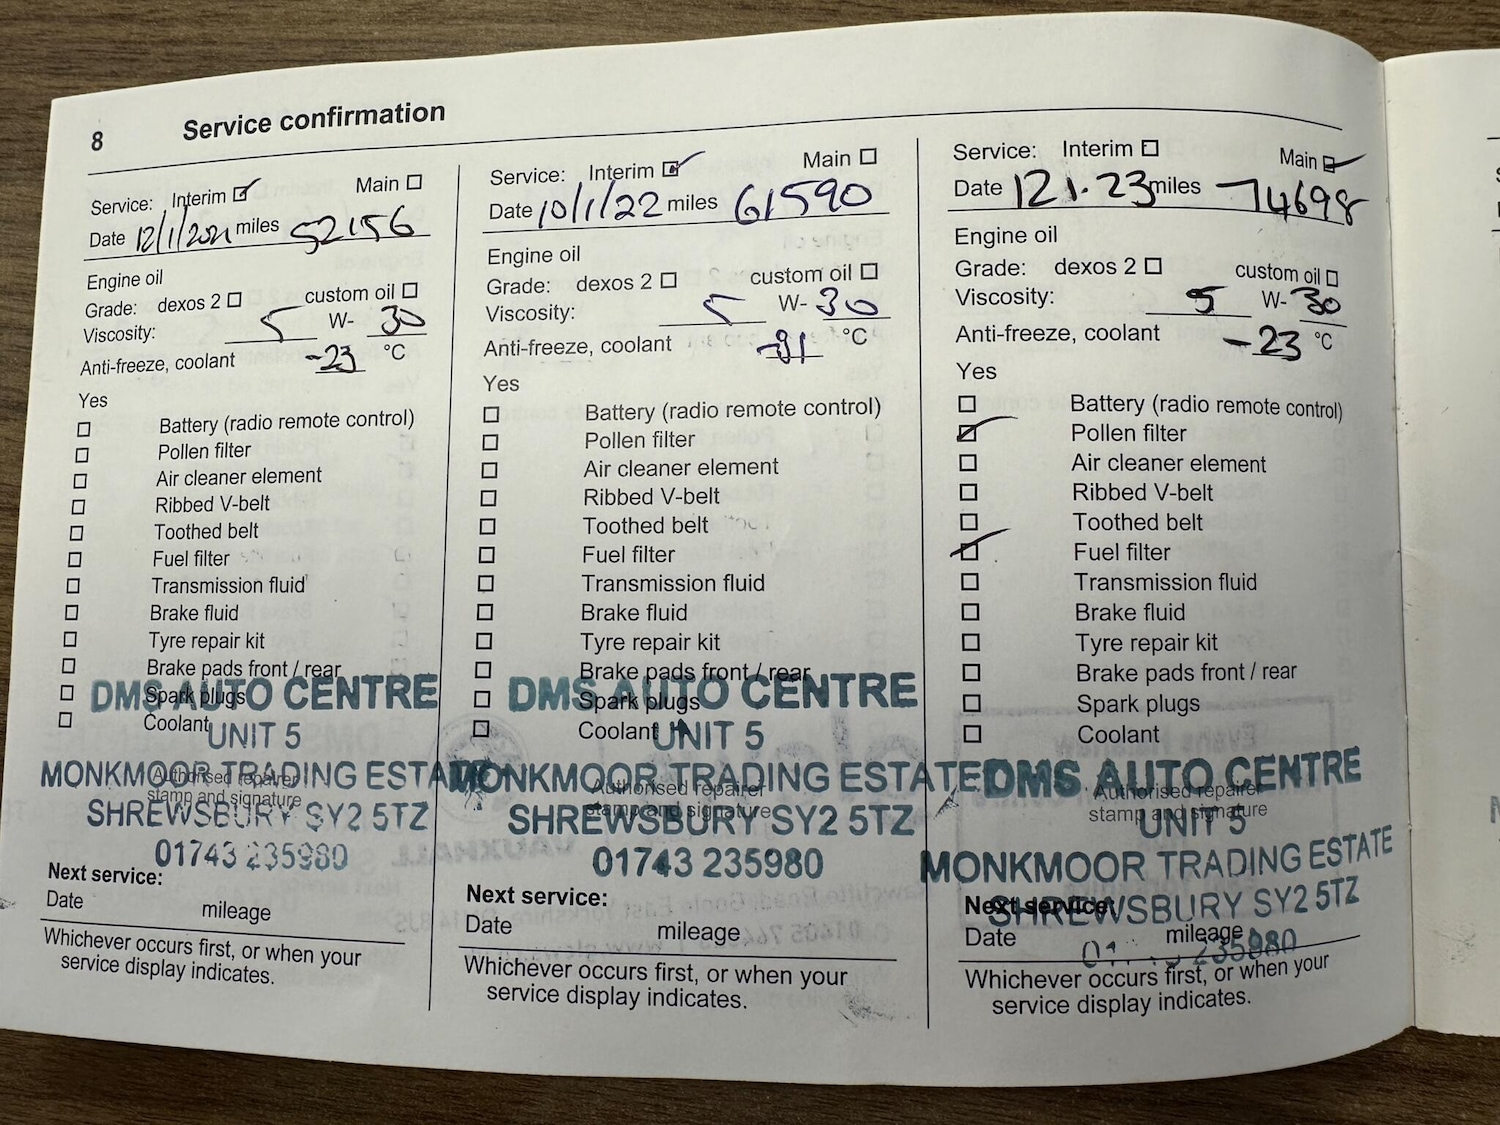 8 Service confirmation
Service: Interim Main
Date 12/1/2021 miles 52156
Engine oil
Grade: dexos 2 custom oil
Viscosity: 5 W- 30
Anti-freeze, coolant -23 °C
Yes
Battery (radio remote control)
Pollen filter
Air cleaner element
Ribbed V-belt
Toothed belt
Fuel filter
Transmission fluid
Brake fluid
Tyre repair kit
Brake pads front / rear
Spark plugs
Coolant
DMS AUTO CENTRE
UNIT 5
MONKMOOR TRADING ESTATE
SHREWSBURY SY2 5TZ
01743 235980
Authorised repairer
stamp and signature
Next service:
Date mileage
Whichever occurs first, or when your
service display indicates.
Service: Interim Main
Date 10/1/22 miles 61590
Engine oil
Grade: dexos 2 custom oil
Viscosity: 5 W- 30
Anti-freeze, coolant -31 °C
Yes
Battery (radio remote control)
Pollen filter
Air cleaner element
Ribbed V-belt
Toothed belt
Fuel filter
Transmission fluid
Brake fluid
Tyre repair kit
Brake pads front / rear
Spark plugs
Coolant
DMS AUTO CENTRE
UNIT 5
MONKMOOR TRADING ESTATE
SHREWSBURY SY2 5TZ
01743 235980
Authorised repairer
stamp and signature
Next service:
Date mileage
Whichever occurs first, or when your
service display indicates.
Service: Interim Main
Date 121.23 miles 74698
Engine oil
Grade: dexos 2 custom oil
Viscosity: 5 W- 30
Anti-freeze, coolant -23 °C
Yes
Battery (radio remote control)
Pollen filter
Air cleaner element
Ribbed V-belt
Toothed belt
Fuel filter
Transmission fluid
Brake fluid
Tyre repair kit
Brake pads front / rear
Spark plugs
Coolant
DMS AUTO CENTRE
UNIT 5
MONKMOOR TRADING ESTATE
SHREWSBURY SY2 5TZ
235980
Authorised repairer
stamp and signature
Next service:
Date mileage
Whichever occurs first, or when your
service display indicates.